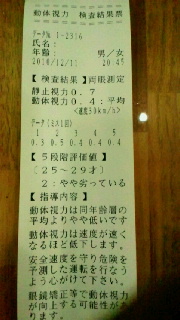 動体視力 検査結果票
データNo 1-2316
氏名:
年齢: 男/女
2018/12/11 20:45
【検査結果】両眼測定
静止視力0.7
動体視力0.4:平均
<速度30km/h>
データ(5入1回)
1 2 3 4 5
0.3 0.5 0.4 0.4 0.4
【5段階評価値】
(25~29才)
2:やや劣っている
【指導内容】
動体視力は同年齢層の
平均よりやや低いです
動体視力は速度が速く
なるほど低下します。
安全速度を守り危険を
予測した運転を行なう
よう心がけて下さい。
眼鏡矯正等で動体視力
が向上する可能性があ
ります。